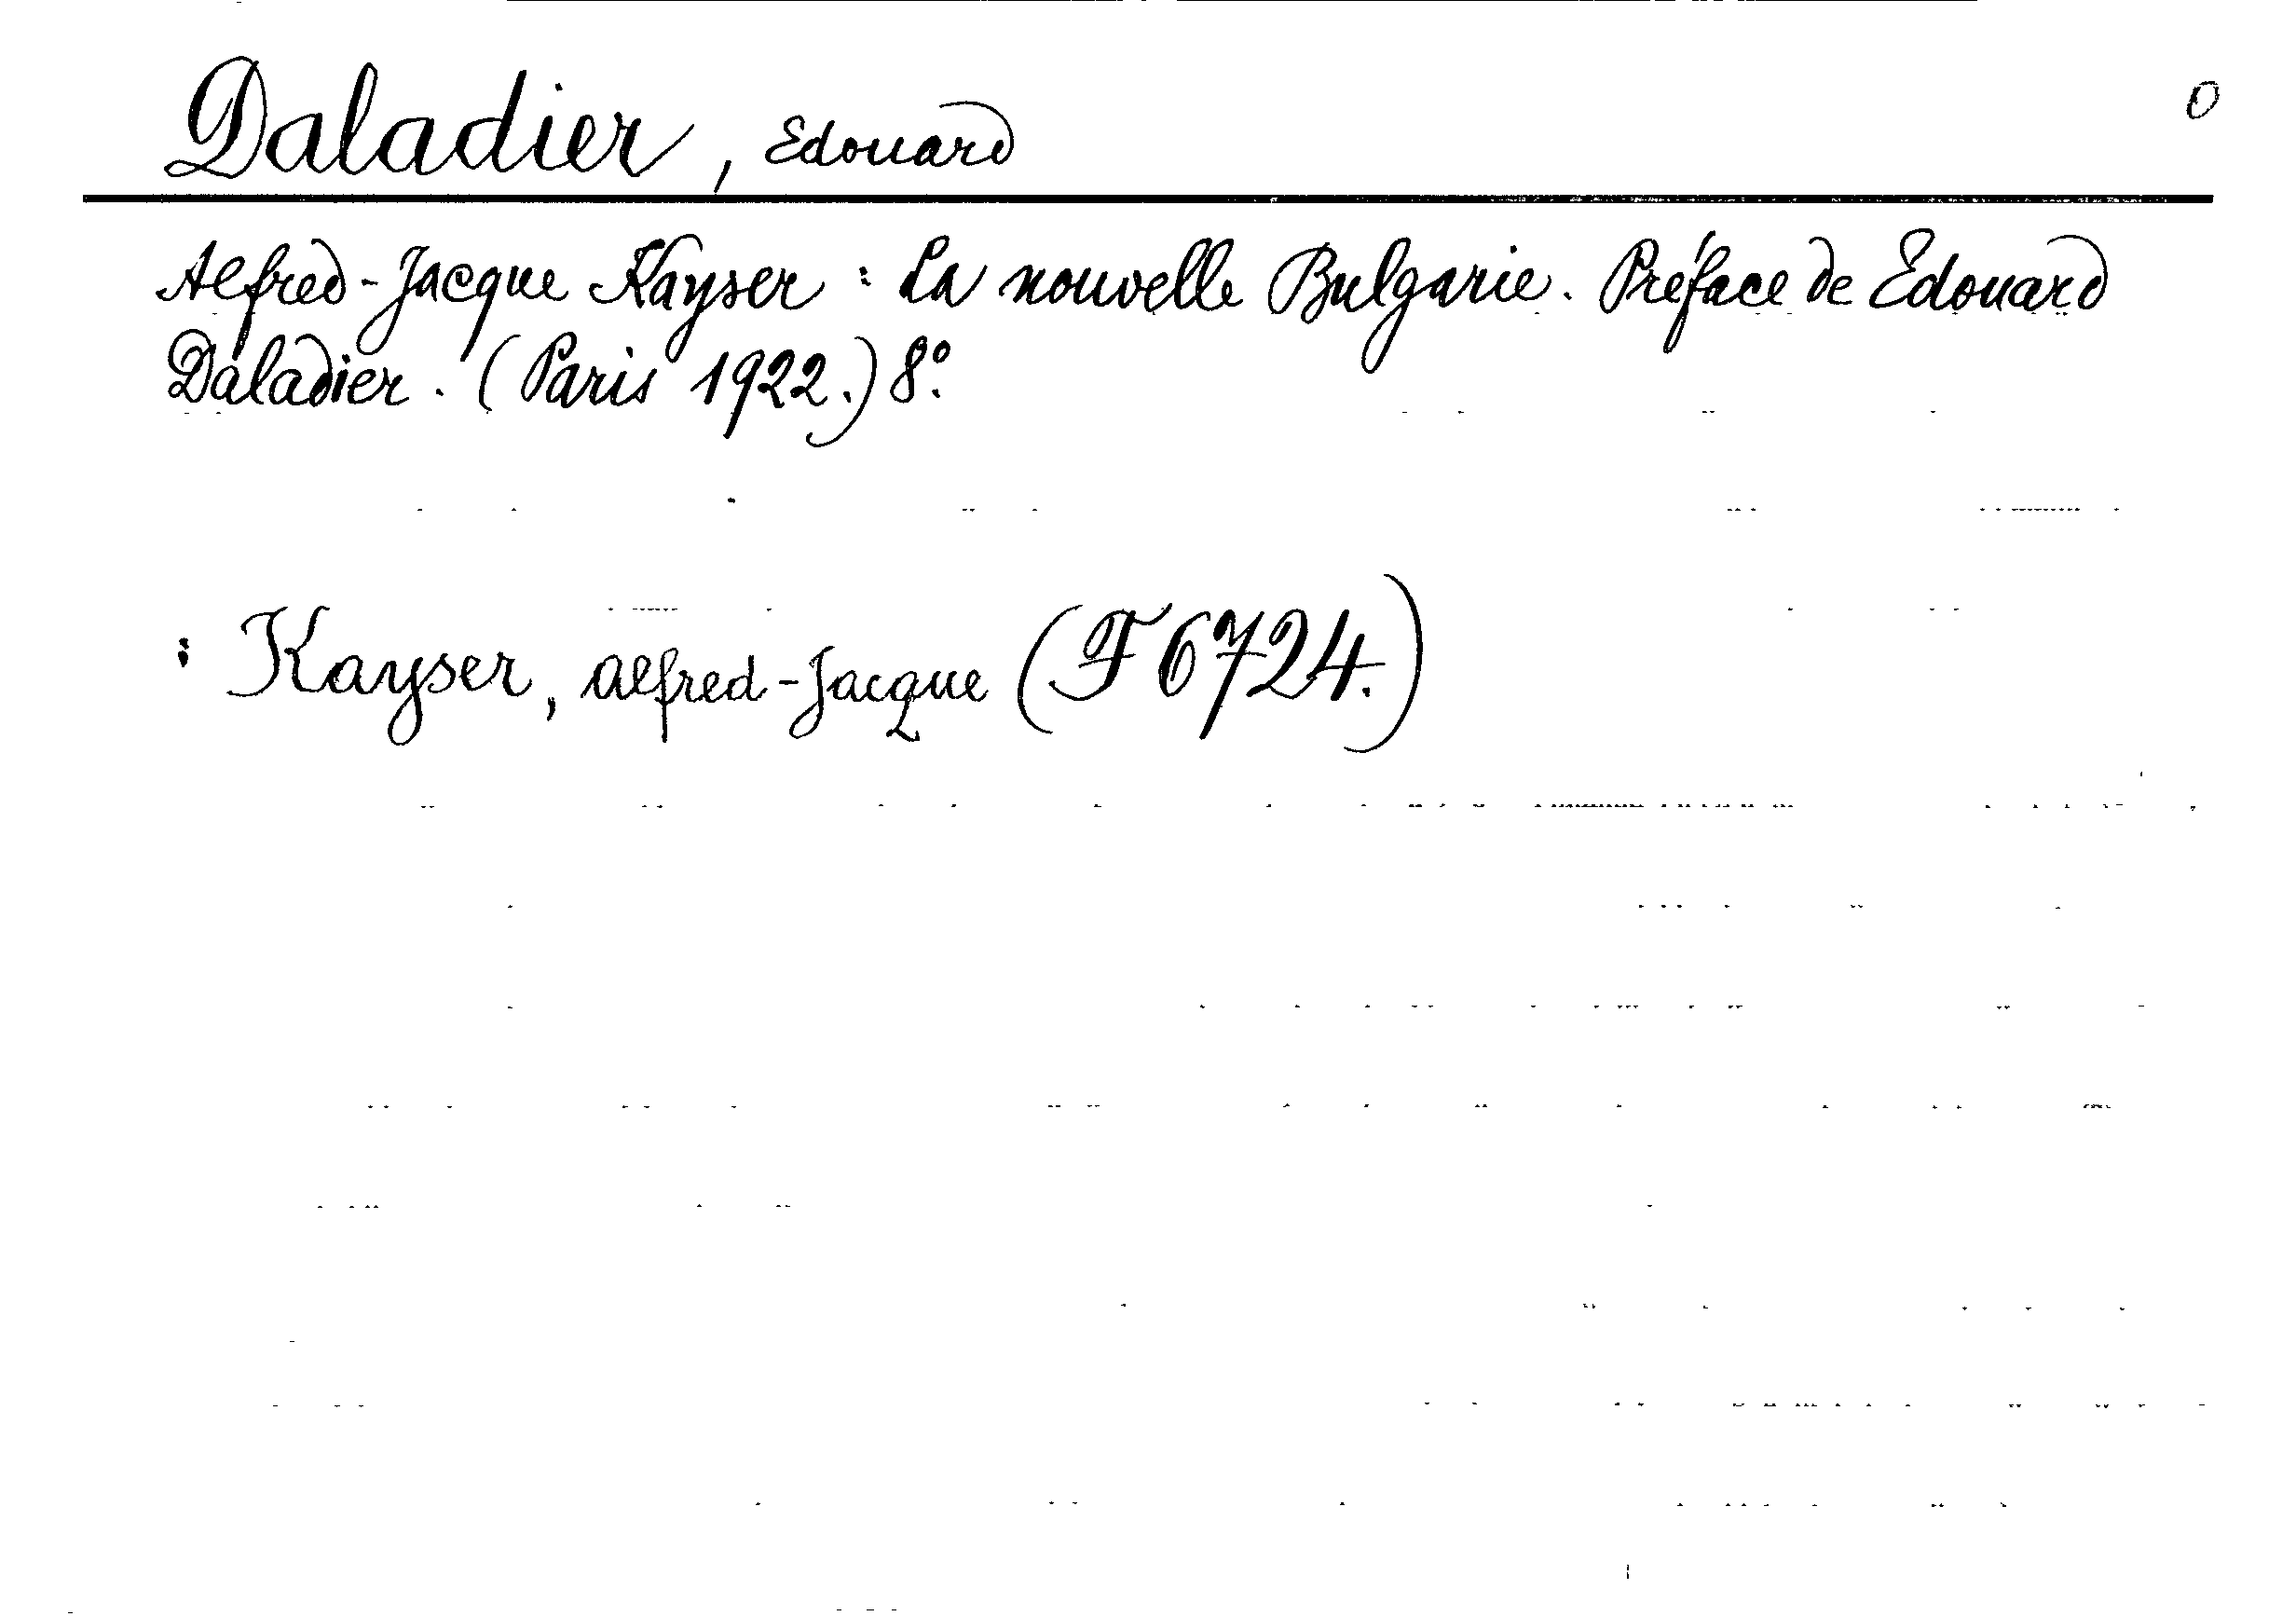 Daladier, Edouard
0
Alfred-Jacque Kayser: La nouvelle Bulgarie. Préface de Edouard
Daladier. (Paris 1922.) 8°.
: Kayser, Alfred-Jacque (F 6724.)